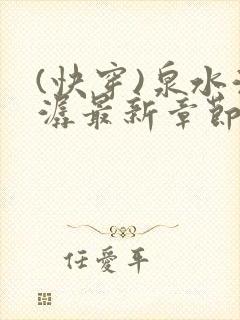 (快穿)泉水
潺最新章節
任愛平